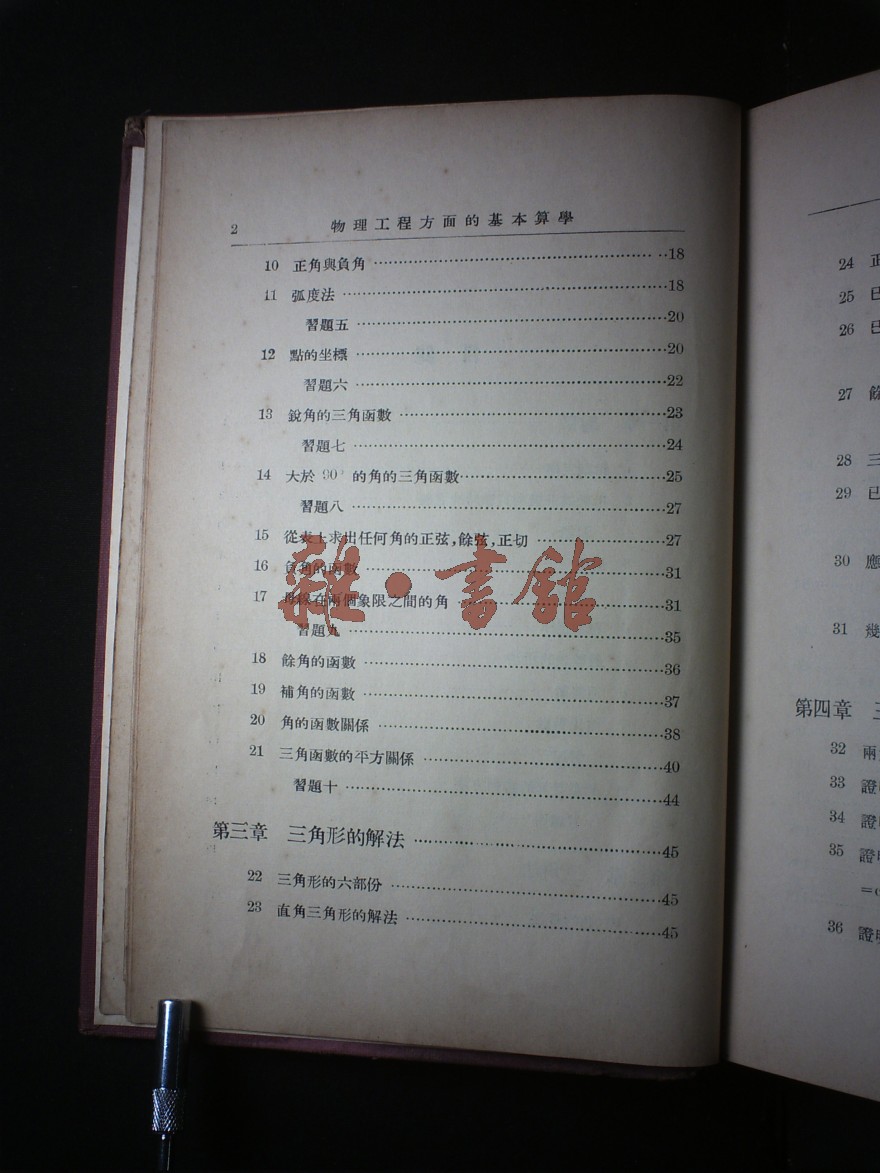 2 物理工程方面的基本算學
10 正角與負角 18
11 弧度法 18
習題五 20
12 點的坐標 20
習題六 22
13 銳角的三角函數 23
習題七 24
14 大於 90° 的角的三角函數 25
習題八 27
15 從表上求出任何角的正弦,餘弦,正切 27
16 負角的函數 31
17 母線在兩個象限之間的角 31
習題九 35
18 餘角的函數 36
19 補角的函數 37
20 角的函數關係 38
21 三角函數的平方關係 40
習題十 44
第三章 三角形的解法 45
22 三角形的六部份 45
23 直角三角形的解法 45
雜·書館
24 正
25 已
26 已
27 餘
28 三
29 已
30 應
31 幾
第四章 三
32 兩
33 證
34 證
35 證
36 證